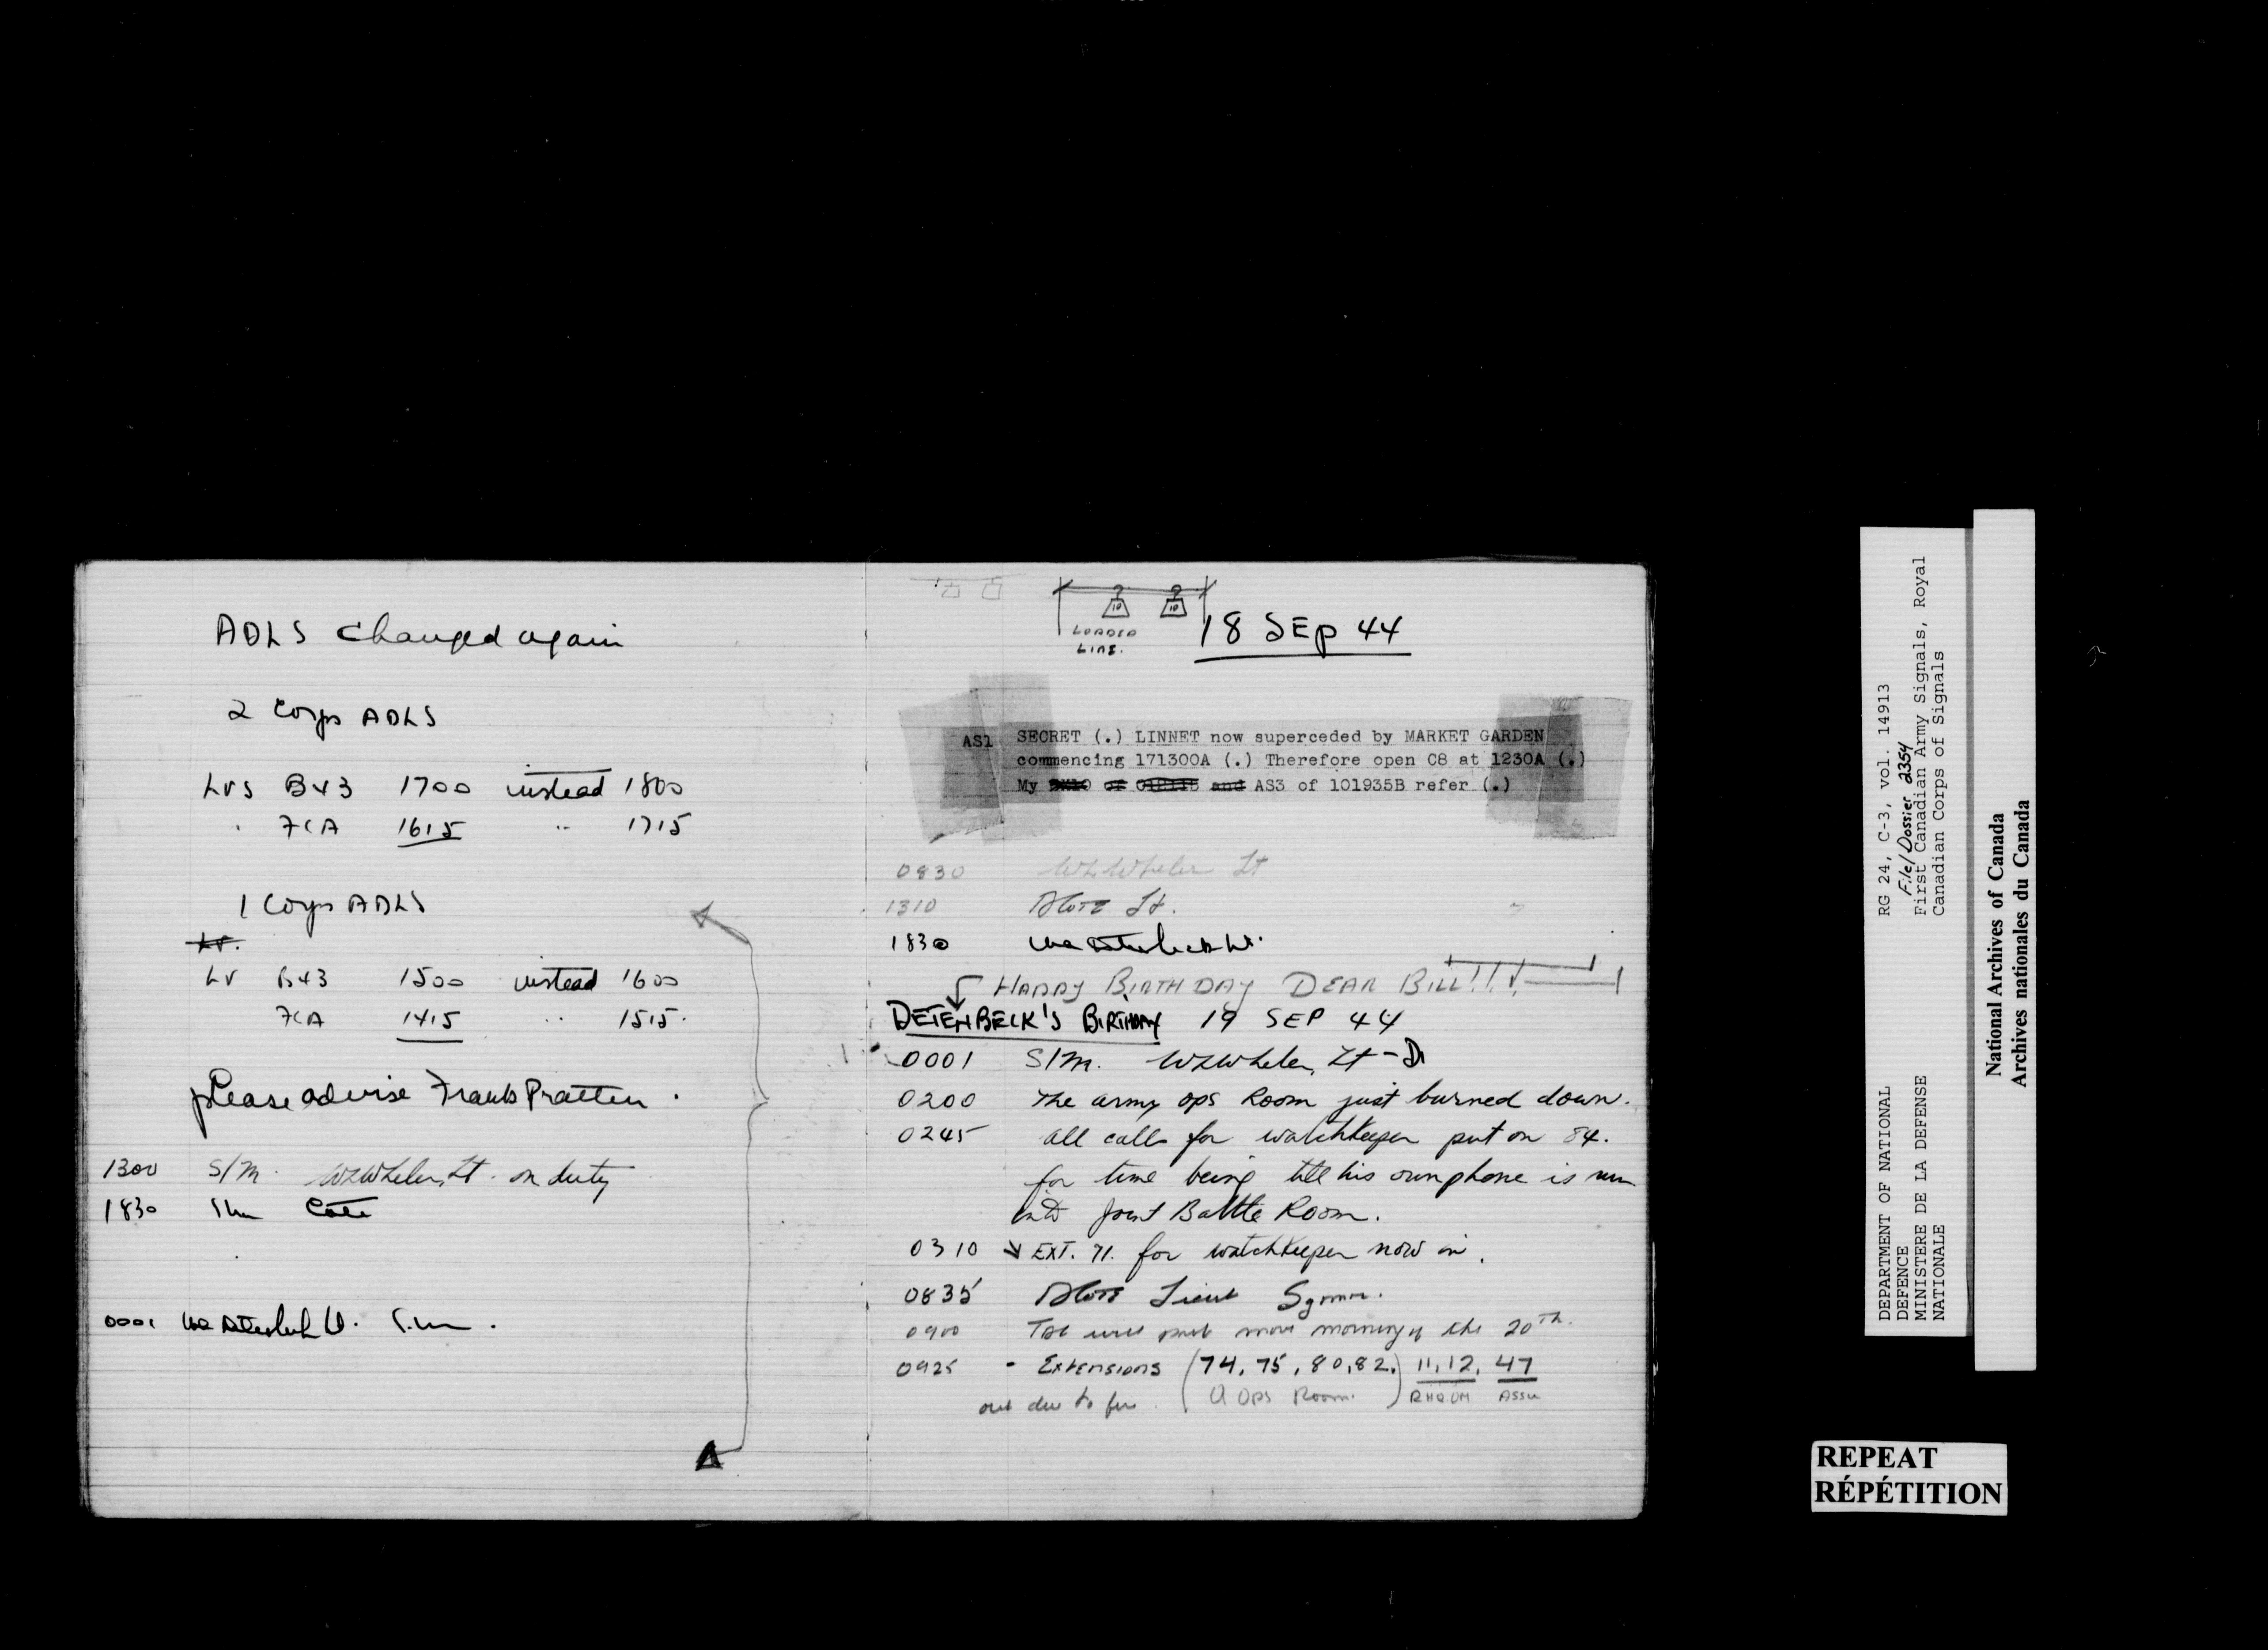 ADLS changed again
2 Corps ADLS
Lvs B43 1700 instead 1800
" FCA 1615 " 1715
1 Corps ADLS
Lv.
Lv B43 1500 instead 1600
FCA 1415 " 1515.
please advise Frank Pratten.
1300 S/M. WLWheler, Lt. on duty
1830 Côté
0001
10 10
LOADED
LINE.
18 SEP 44
AS1 SECRET (.) LINNET now superceded by MARKET GARDEN
commencing 171300A (.) Therefore open C8 at 1230A (.)
My and AS3 of 101935B refer (.)
0830 WLWheler Lt
1310 Lt.
1830
HAPPY BIRTHDAY DEAR BILL!!!
DETENBECK'S BIRTHDAY 19 SEP 44
0001 S/M. WLWheler, Lt - D
0200 The army ops Room just burned down.
0245 all calls for watchkeeper put on 84.
for time being till his own phone is run
into Joint Battle Room.
0310 EXT. 71. for watchkeeper now in.
0835 Lieut
0900 Tac move morning of the 20th.
0925 - Extensions (74, 75, 80, 82.) 11, 12, 47
out due to fire. (A OPS Room.) ASSU
DEPARTMENT OF NATIONAL
DEFENCE
MINISTERE DE LA DEFENSE
NATIONALE
RG 24, C-3, vol. 14913
File/Dossier 2354
First Canadian Army Signals, Royal
Canadian Corps of Signals
National Archives of Canada
Archives nationales du Canada
REPEAT
RÉPÉTITION